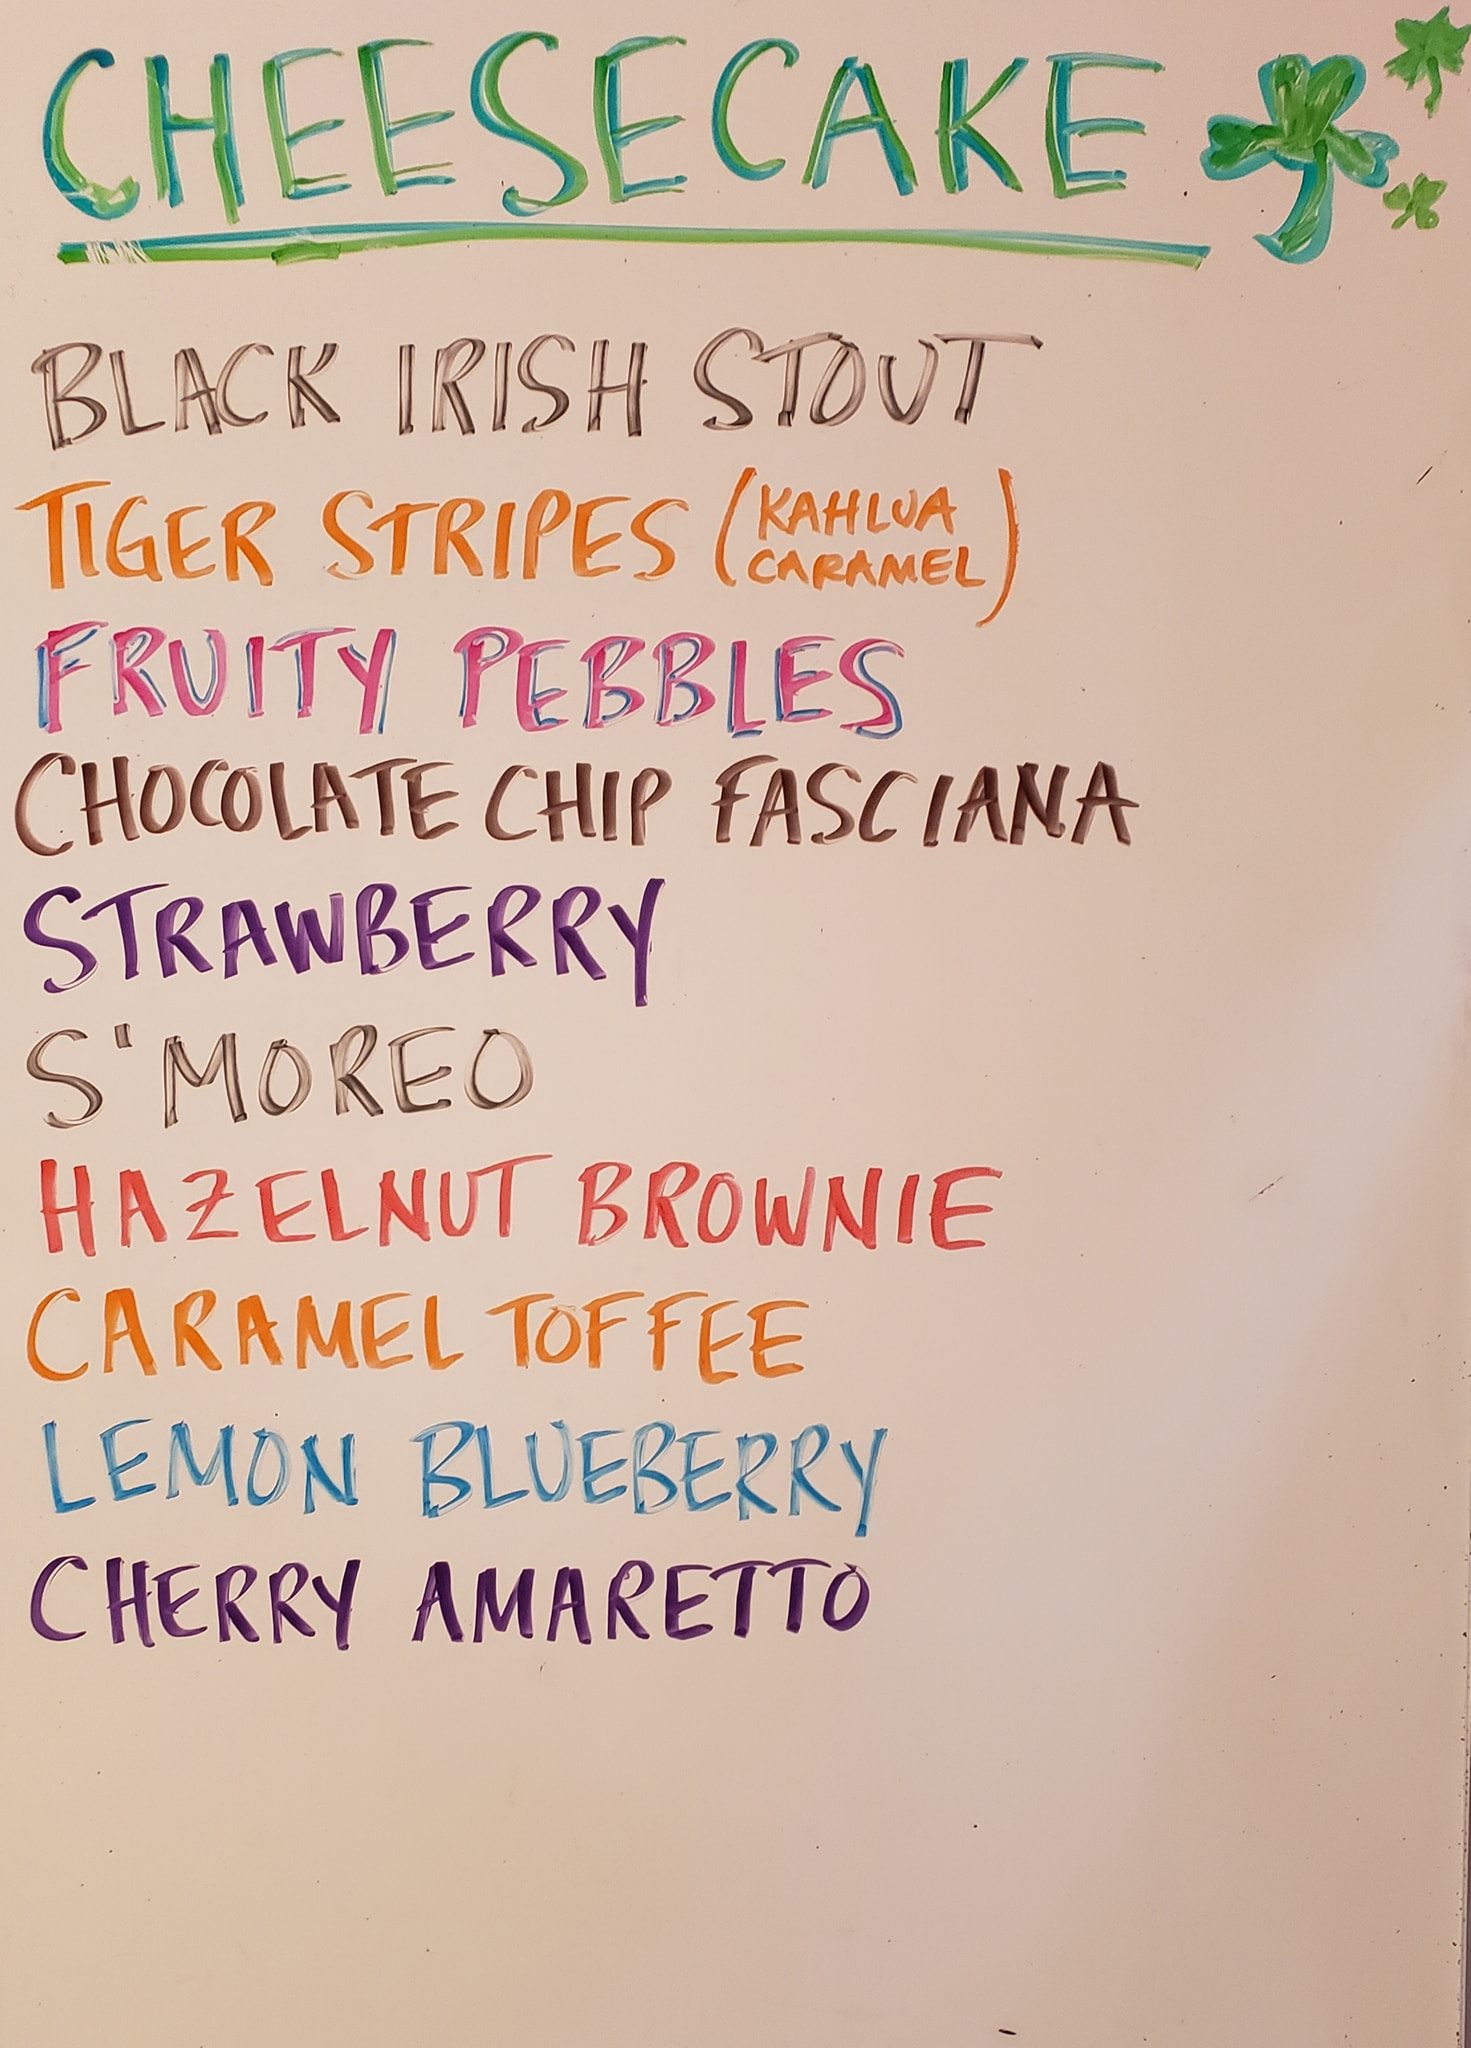 CHEESECAKE
BLACK IRISH STOUT
TIGER STRIPES (KAHLUA CARAMEL)
FRUITY PEBBLES
CHOCOLATE CHIP FASCIANA
STRAWBERRY
S'MOREO
HAZELNUT BROWNIE
CARAMEL TOFFEE
LEMON BLUEBERRY
CHERRY AMARETTO